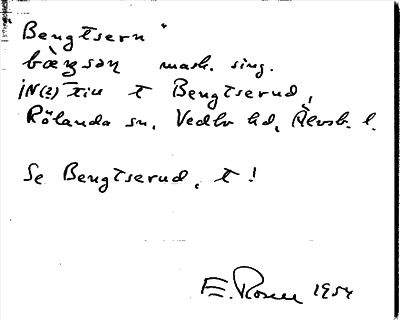 Bengtsern
bæ̀ŋsən mask. sing.
iN(2) tiu t Bengtserud,
Rölanda sn, Vedbo hd, Älvsb. l.
Se Bengtserud, t!
E. Rosell 1954